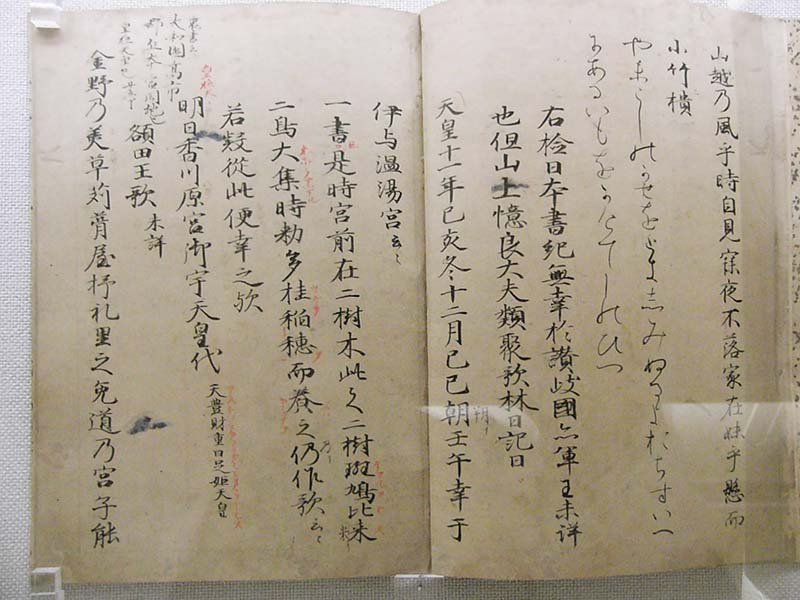 山越乃風乎時自見寐夜不落家在妹乎懸而
小竹樻
やまこしのかせをときしみぬるよおちすいへ
にあるいもをかけてしのひつ
右検日本書紀無幸於讃岐國亦軍王未詳
也但山上憶良大夫類聚歌林曰記曰
天皇十一年己亥冬十二月己巳朝壬午幸于
朔イ
伊与温湯宮云〻
一書是時宮前在二樹木此之二樹斑鳩比米
二鳥大集時勅多桂稲穂而養之仍作歌云〻
若疑從此便幸之歟
明日香川原宮御宇天皇代 天豊財重日足姫天皇
額田王歌 未詳
金野乃美草苅葺屋杼礼里之兔道乃宮子能